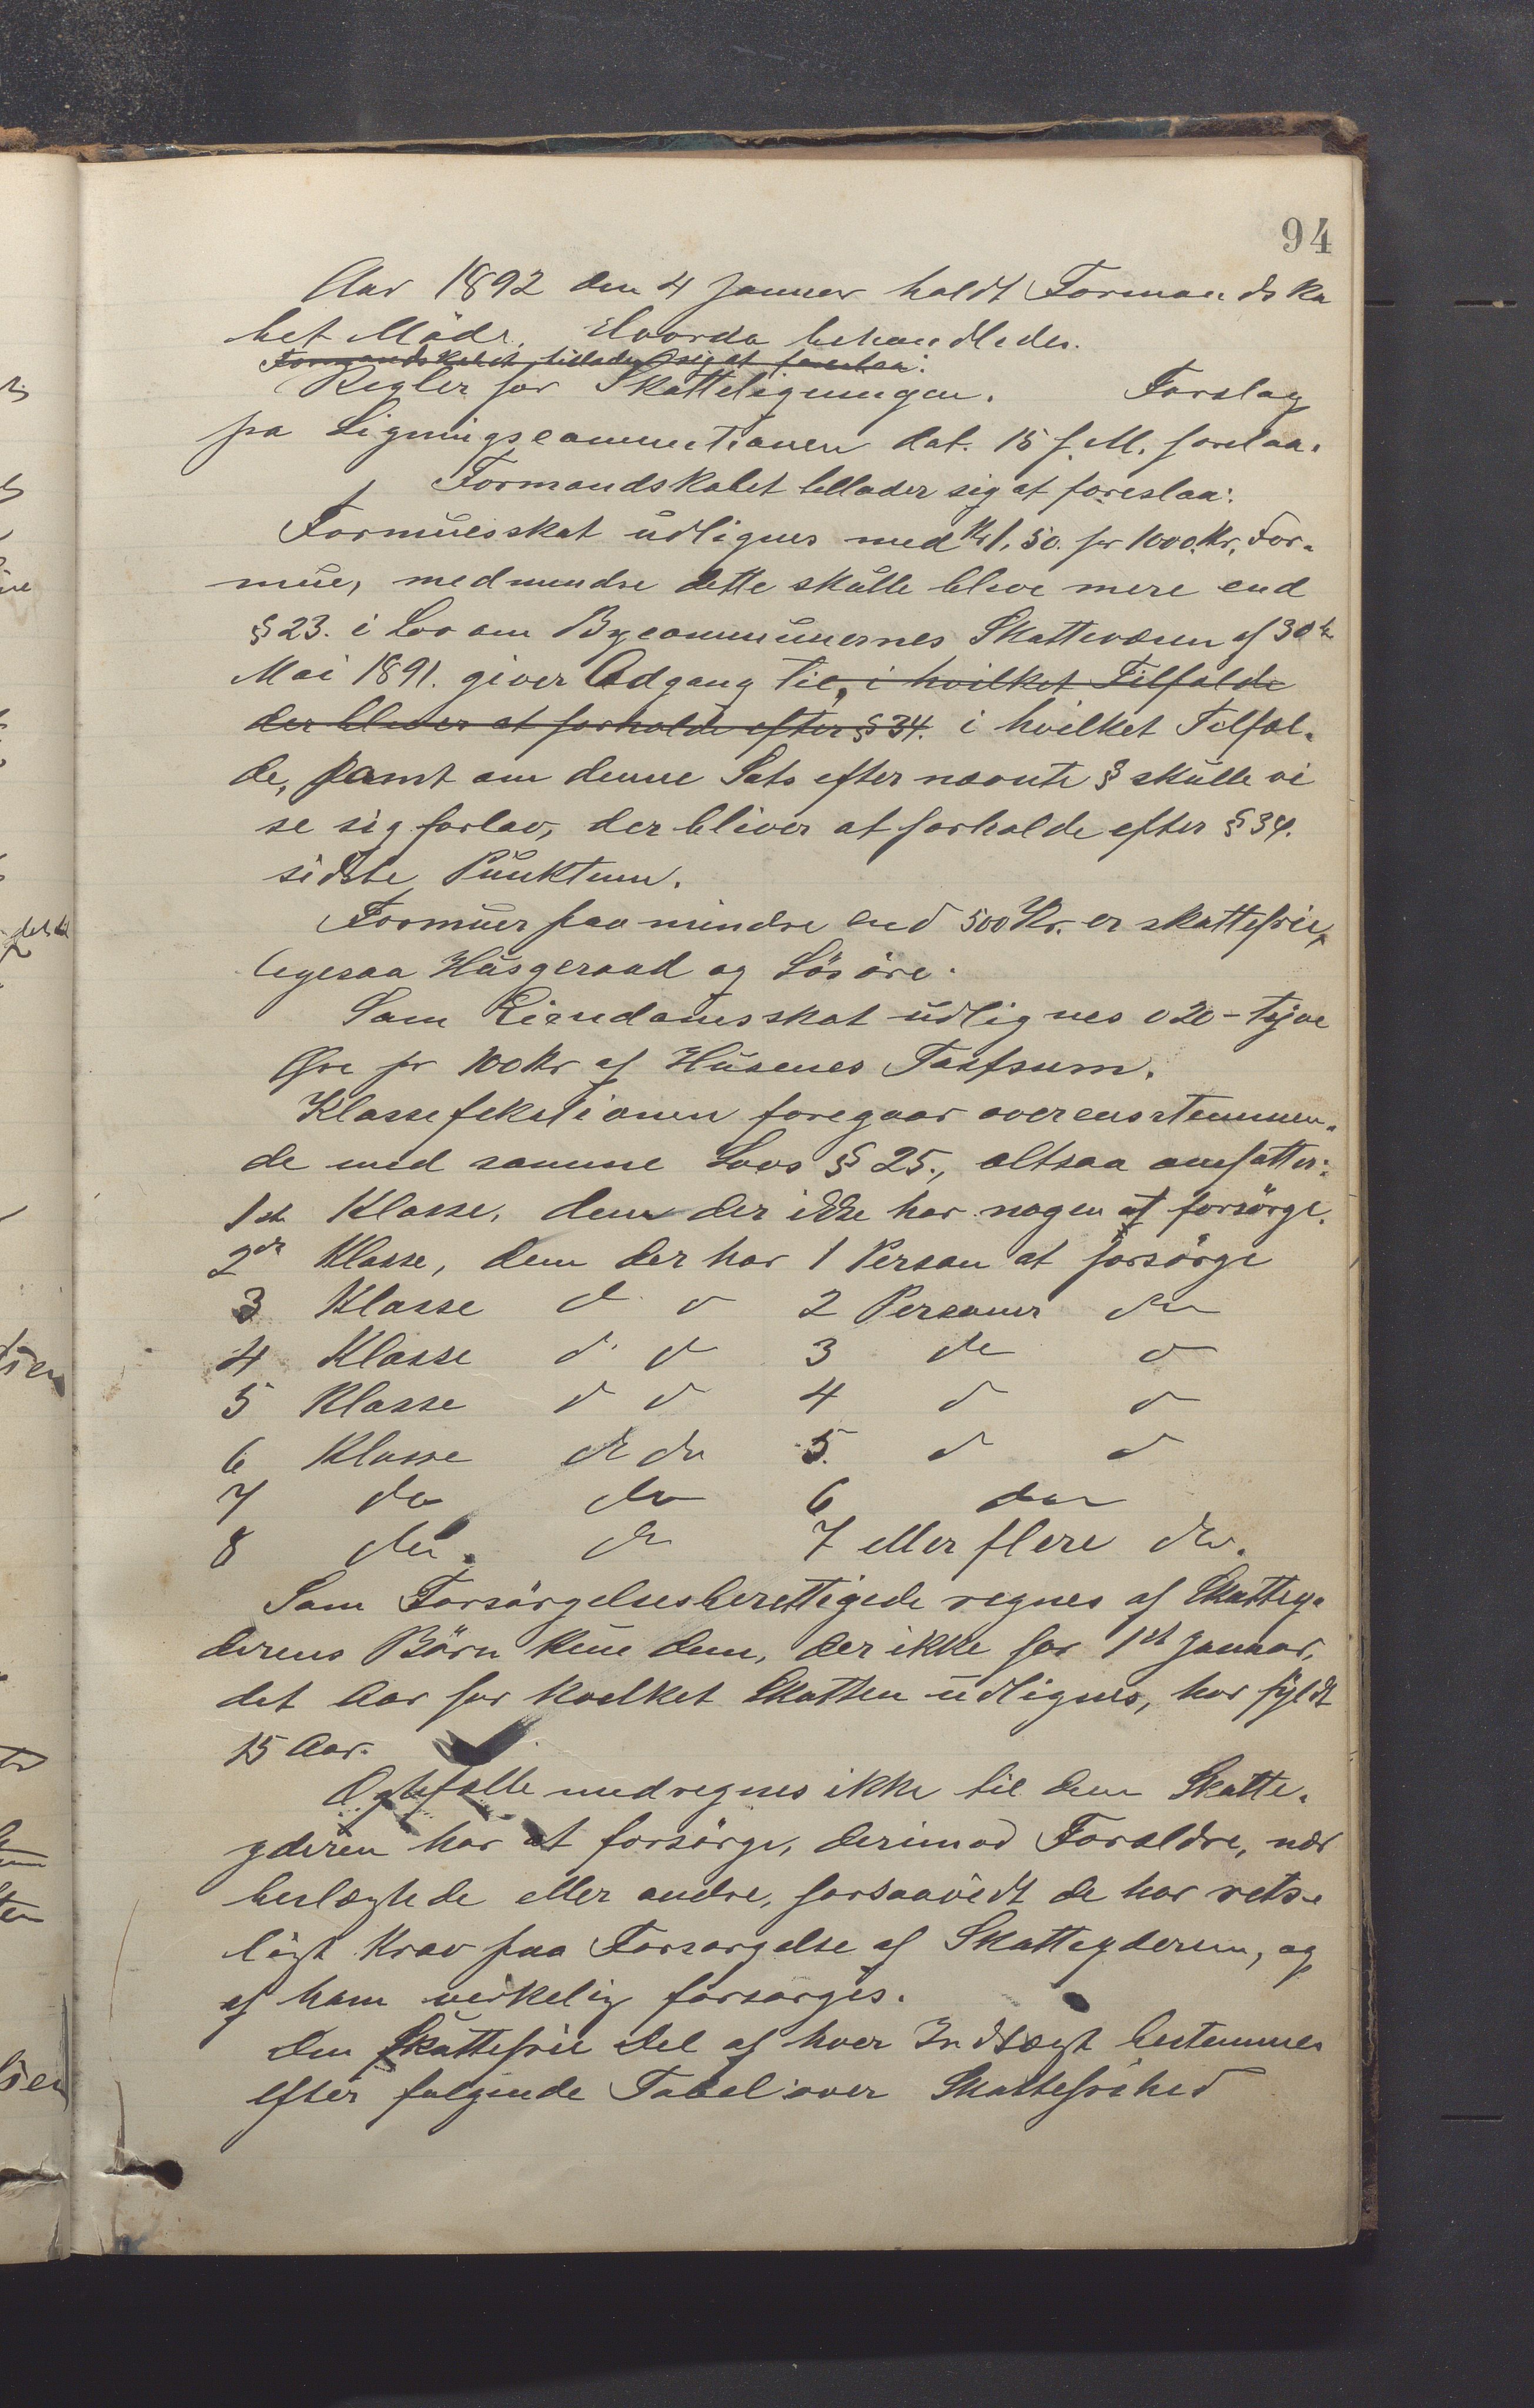 94
Aar 1892 den 4 Januar holdt Formandska
bet Möde. Hvorda behandledes.
Formandskabet tillader sig at foreslaa:
Regler for Skatteligningen. Forslag
fra Ligningscommitionen dat. 15 f. M. forelaa.
Formandskabet tillader sig at foreslaa:
Formuesskat udlignes med Kr 1,50. pr 1000 Kr. For-
mue, medmindre dette skulle blive mere end
§ 23. i Lov om Bycommunernes Skattevæsen af 30te
Mai 1891. giver Adgang til, i hvilket Tilfælde
der bliver at forholde efter § 34. i hvilket Tilfæl-
de, samt om denne Sats efter nævnte § skulle vi
se sig forlav, der bliver at forholde efter § 34.
sidste Punktum.
Formuer paa mindre end 500 Kr. er skattefrie,
ligesaa Husgeraad og Lösöre.
Som Eiendomsskat udlignes 0 20 - tyve
Øre pr 100 Kr af Husenes Taxtsum.
Klassefikationen foregaar overensstemmen-
de med samme Lovs § 25., altsaa omfatter:
1ste Klasse, dem der ikke har nogen at forsörge.
2den Klasse, dem der har 1 Person at forsörge
3 Klasse d d 2 Personer do
4 Klasse d d 3 do d
5 Klasse d d 4 d d
6 Klasse do do 5. d d
7 do do 6 do
8 do. do 7 eller flere do.
Som Forsörgelsesberettigede regnes af Skattey-
derens Börn kun dem, der ikke før 1ste Januar,
det Aar for hvilket Skatten udlignes, har fyldt
15 Aar.
Ægtefælle medregnes ikke til dem Skatte-
yderen har at forsörge, derimod Forældre, nær
beslægtede eller andre, forsaavidt de har rets-
ligt Krav paa Forsørgelse af Skatteyderen, og
af ham virkelig forsørges.
Den skattefrie Del af hver Indtægt bestemmes
efter følgende Tabel over Skattefrihed